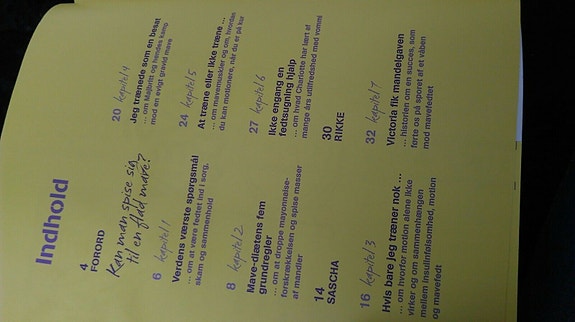 Indhold
4
FORORD
Kan man spise sig
til en flad mave?
6 kapitel 1
Verdens værste spørgsmål
... om at være fedtet ind i sorg,
skam og sammenhold
8 kapitel 2
Mave-diætens fem
grundregler
... om at droppe mayonnaise-
forskrækkelsen og spise masser
af mandler
14
SASCHA
16 kapitel 3
Hvis bare jeg træner nok ...
... om hvorfor motion alene ikke
virker og om sammenhængen
mellem insulinfølsomhed, motion
og mavefedt
20 kapitel 4
Jeg trænede som en besat
... om Majbritt og hendes kamp
mod en evigt gravid mave
24 kapitel 5
At træne eller ikke træne ...
... om mavemuskler og om, hvordan
du kan motionere, når du er på kur
27 kapitel 6
Ikke engang en
fedtsugning hjalp
... om hvad Charlotte har lært af
mange års utilfredshed med vommen
30
RIKKE
32 kapitel 7
Victoria fik mandelgaven
... historien om en succes, som
førte os på sporet af et våben
mod mavefedtet